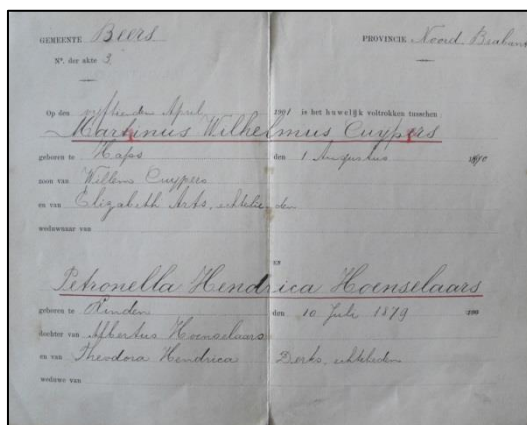 GEMEENTE Beers
PROVINCIE Noord Brabant
N°. der akte 3.
Op den vijftienden April 1901 is het huwelijk voltrokken tusschen
Martinus Wilhelmus Cuypers
geboren te Haps den 1 Augustus
zoon van Willem Cuypers
en van Elizabeth Arts, echtelieden
weduwnaar van
en
Petronella Hendrica Hoenselaars
geboren te Linden den 10 Juli 1879
dochter van Albertus Hoenselaars
en van Theodora Hendrica Derks, echtelieden
weduwe van